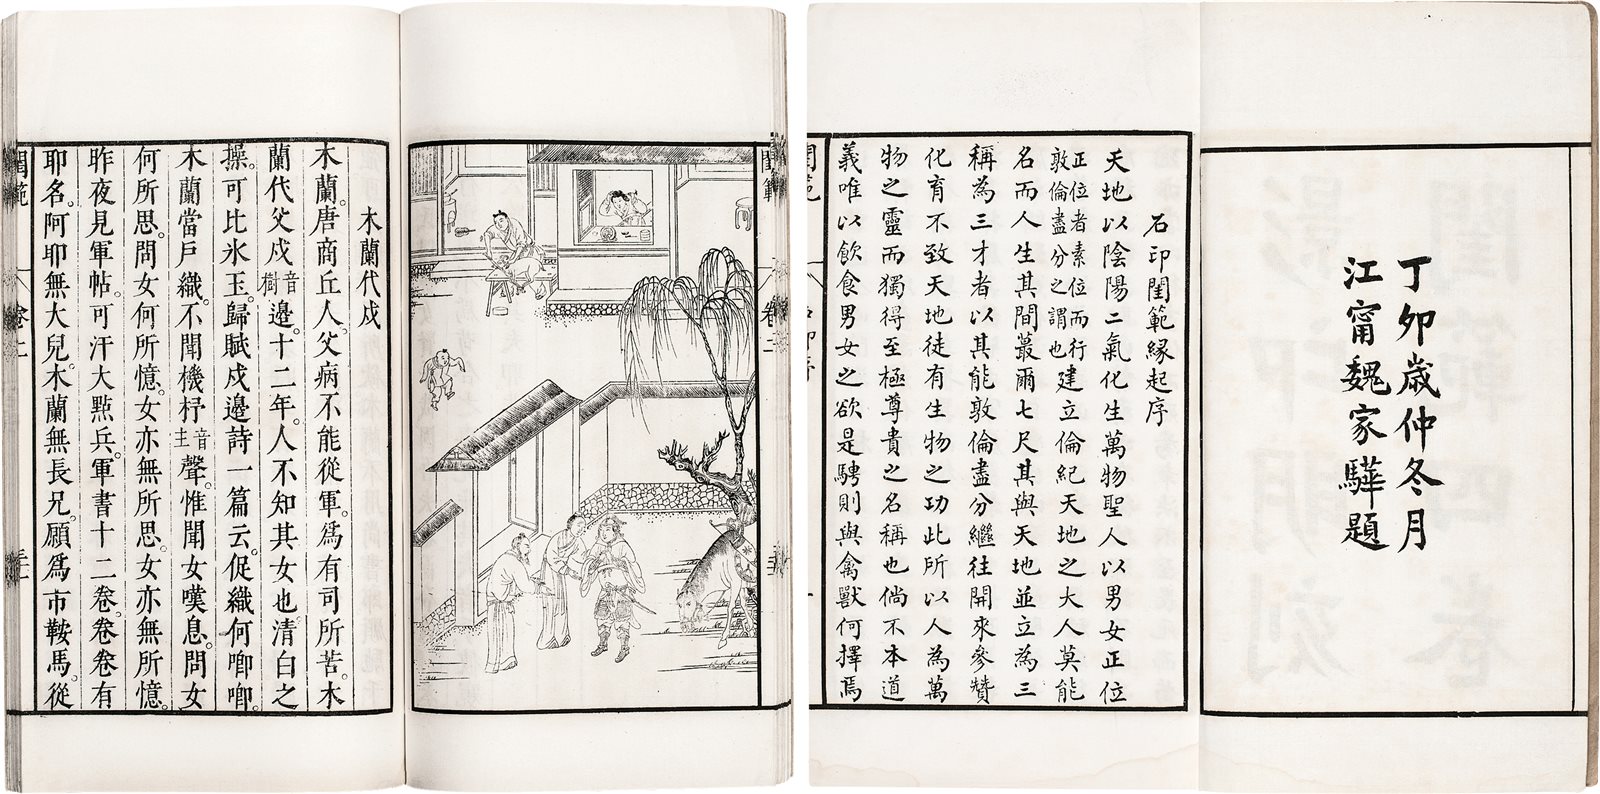 丁卯歲仲冬月
江甯魏家驊題
石印閨範緣起序
天地以陰陽二氣化生萬物聖人以男女正位
正位者素位而行敦倫盡分之謂也建立倫紀天地之大人莫能
名而人生其間蕞爾七尺其與天地並立為三
稱為三才者以其能敦倫盡分繼往開來參贊
化育不致天地徒有生物之功此所以人為萬
物之靈而獨得至極尊貴之名稱也倘不本道
義唯以飲食男女之欲是騁則與禽獸何擇焉
閨範
閨範 卷二
木蘭代戍
木蘭。唐商丘人。父病不能從軍。爲有司所苦。木
蘭代父戍音樹邊。十二年。人不知其女也。清白之
操。可比氷玉。歸賦戍邊詩一篇云。促織何唧唧。
木蘭當戶織。不聞機杼音主聲。惟聞女嘆息。問女
何所思。問女何所憶。女亦無所思。女亦無所憶。
昨夜見軍帖。可汗大㸃兵。軍書十二卷。卷卷有
耶名。阿耶無大兒。木蘭無長兄。願爲市鞍馬。從
閨範 卷二